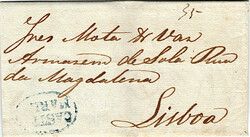 35
Jnes Mota & Van
Armasem de Sola Rua
da Magdalena
Lisboa
CASTE